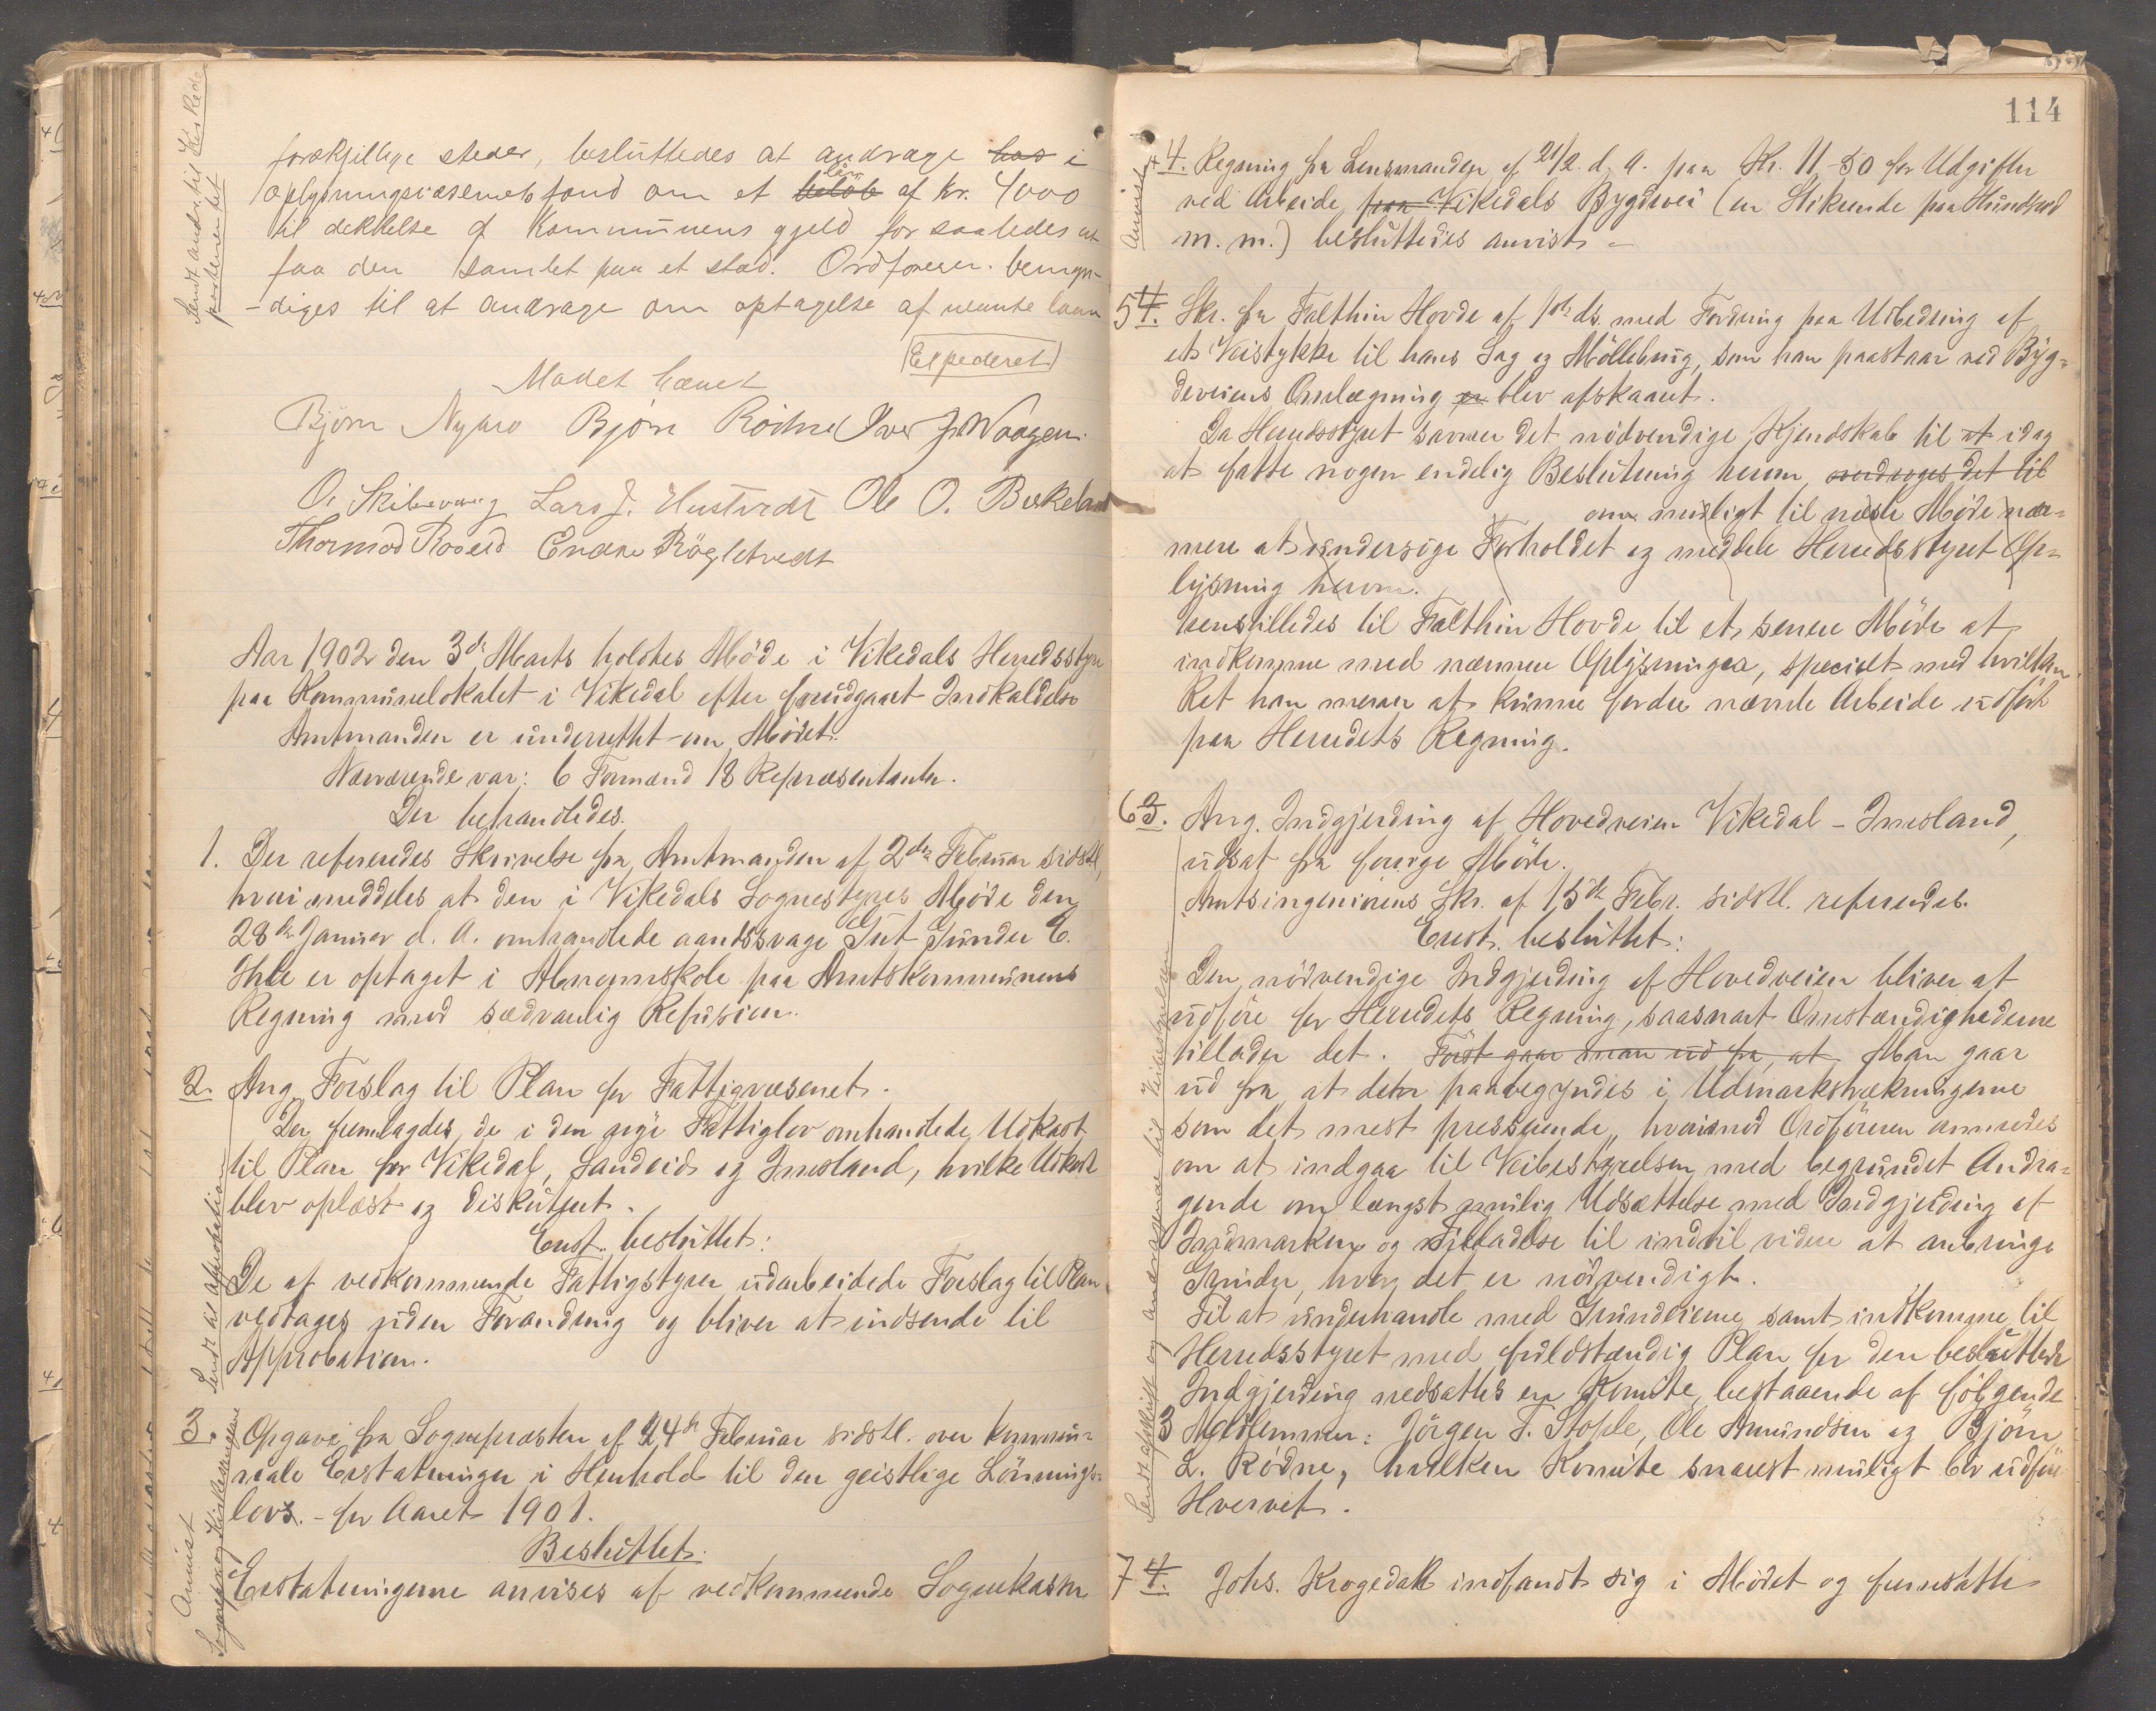 forskjellige steder, besluttedes at andrage hos i
oplysningsvæsenets fond om et beløb lån af kr. 4000
til dekkelse af Kommunens gjeld for saaledes at
faa den samlet paa et sted. Ordföreren bemyn-
-diges til at andrage om optagelse af nevnte laan
Expederet
Mødet hævet
Bjørn Nymo Bjørn Rödne Iver J. Waagen
O. Skibevaag Lars J. Hustvedt Ole O. Birkeland
Thormod Roseid Endre Röglelvedt
Aar 1902 den 3de Marts holdtes Möde i Vikedals Herredsstyre
paa Kommunelokalet i Vikedal efter forudgaaet Indkaldelse
Amtmanden er underrettet om Mödet.
Nærværende var: 6 Formænd 18 Repræsentanter.
Der behandledes.
1. Der refereredes Skrivelse fra Amtmanden af 2den Februar sidstl.,
hvori meddeles at den i Vikedals Sognestyres Möde den
28de Januar d. A. omhandlede aandssvage Gut Gunder E.
Ihle er optaget i Abnormskole paa Amtskommunens
Regning mod sædvanlig Refusion.
2. Ang. Forslag til Plan for Fattigvæsenet.
Der fremlagdes de i den nye Fattiglov omhandlede Udkast
til Plan for Vikedal, Sandeid og Imsland, hvilke Udkast
blev oplæst og diskuteret.
Enst. besluttet:
De af vedkommende Fattigstyrer udarbeidede Forslag til Plan
vedtages uden Forandring og bliver at indsende til
Approbation.
3. Opgave fra Sognepræsten af 24de Februar sidstl. over kommu-
nale Erstatninger i Henhold til den geistlige Lönnings-
lovs. - for Aaret 1901.
Besluttet:
Erstatningerne anvises af vedkommende Sognekasser
Sendt andr. til Kirkedep.
Sendt til Approbation
Anvist
Sogneprest og Kirkesangere
114
4. Regning fra Lensmanden af 21/2 d. A. paa Kr. 11-50 for Udgifter
ved Arbeide paa Vikedals Bygdevei (en Stikrende paa Hundseid
m. m.) besluttedes anvist -
Anvist
5 4. Skr. fra Falthin Hovde af 1ste ds. med Fordring paa Udbedring af
et Veistykke til hans Sag og Möllebrug, som han paastaar ved Byg-
deveiens Omlægning er blev afskaaret.
Da Herredsstyret savner det nödvendige Kjendskab til at idag
at fatte nogen endelig Beslutning herom, overdroges det til
om muligt til næste Möde nær-
mere at undersöge Forholdet og meddele Herredsstyret Op-
lysning herom.
henstilledes til Falthin Hovde til et senere Möde at
indkomme med nærmere Oplysninger, specielt med hvilken
Ret han mener at kunne fordre nævnte Arbeide udfört
paa Herredets Regning.
6 3. Ang. Indgjerding af Hovedveien Vikedal - Imsland,
udsat fra forrige Möde.
Amtsingeniörens Skr. af 15de Febr. sidstl. refereredes.
Enst. besluttet:
Den nödvendige Indgjerding af Hovedveien bliver at
udföre for Herredets Regning, saasnart Omstændighederne
tillader det. Först gaar man ud fra, at Man gaar
ud fra, at den paabegyndes i Udmarkstrækningerne
som det mest pressende, hvorimod Ordföreren anmodes
om at indgaa til Veibestyrelsen med begrundet Andra-
gende om længst mulig Udsættelse med Indgjerding af
Indmarken og Tilladelse til indtil videre at anbringe
Grinder, hvor det er nödvendigt.
Til at underhandle med Grundeierne samt indkomme til
Herredsstyret med fuldstændig Plan for den besluttede
Indgjerding nedsattes en Komite, bestaaende af fölgende
3 Medlemmer: Jörgen T. Stople, Ole Amundsen og Björn
L. Rödne, hvilken Komite snarest muligt bör udföre
Hvervet.
Sendt afskrift og andragende til Veibestyrelsen
7 4. Johs. Krogedal indfandt sig i Mödet og fremsatte